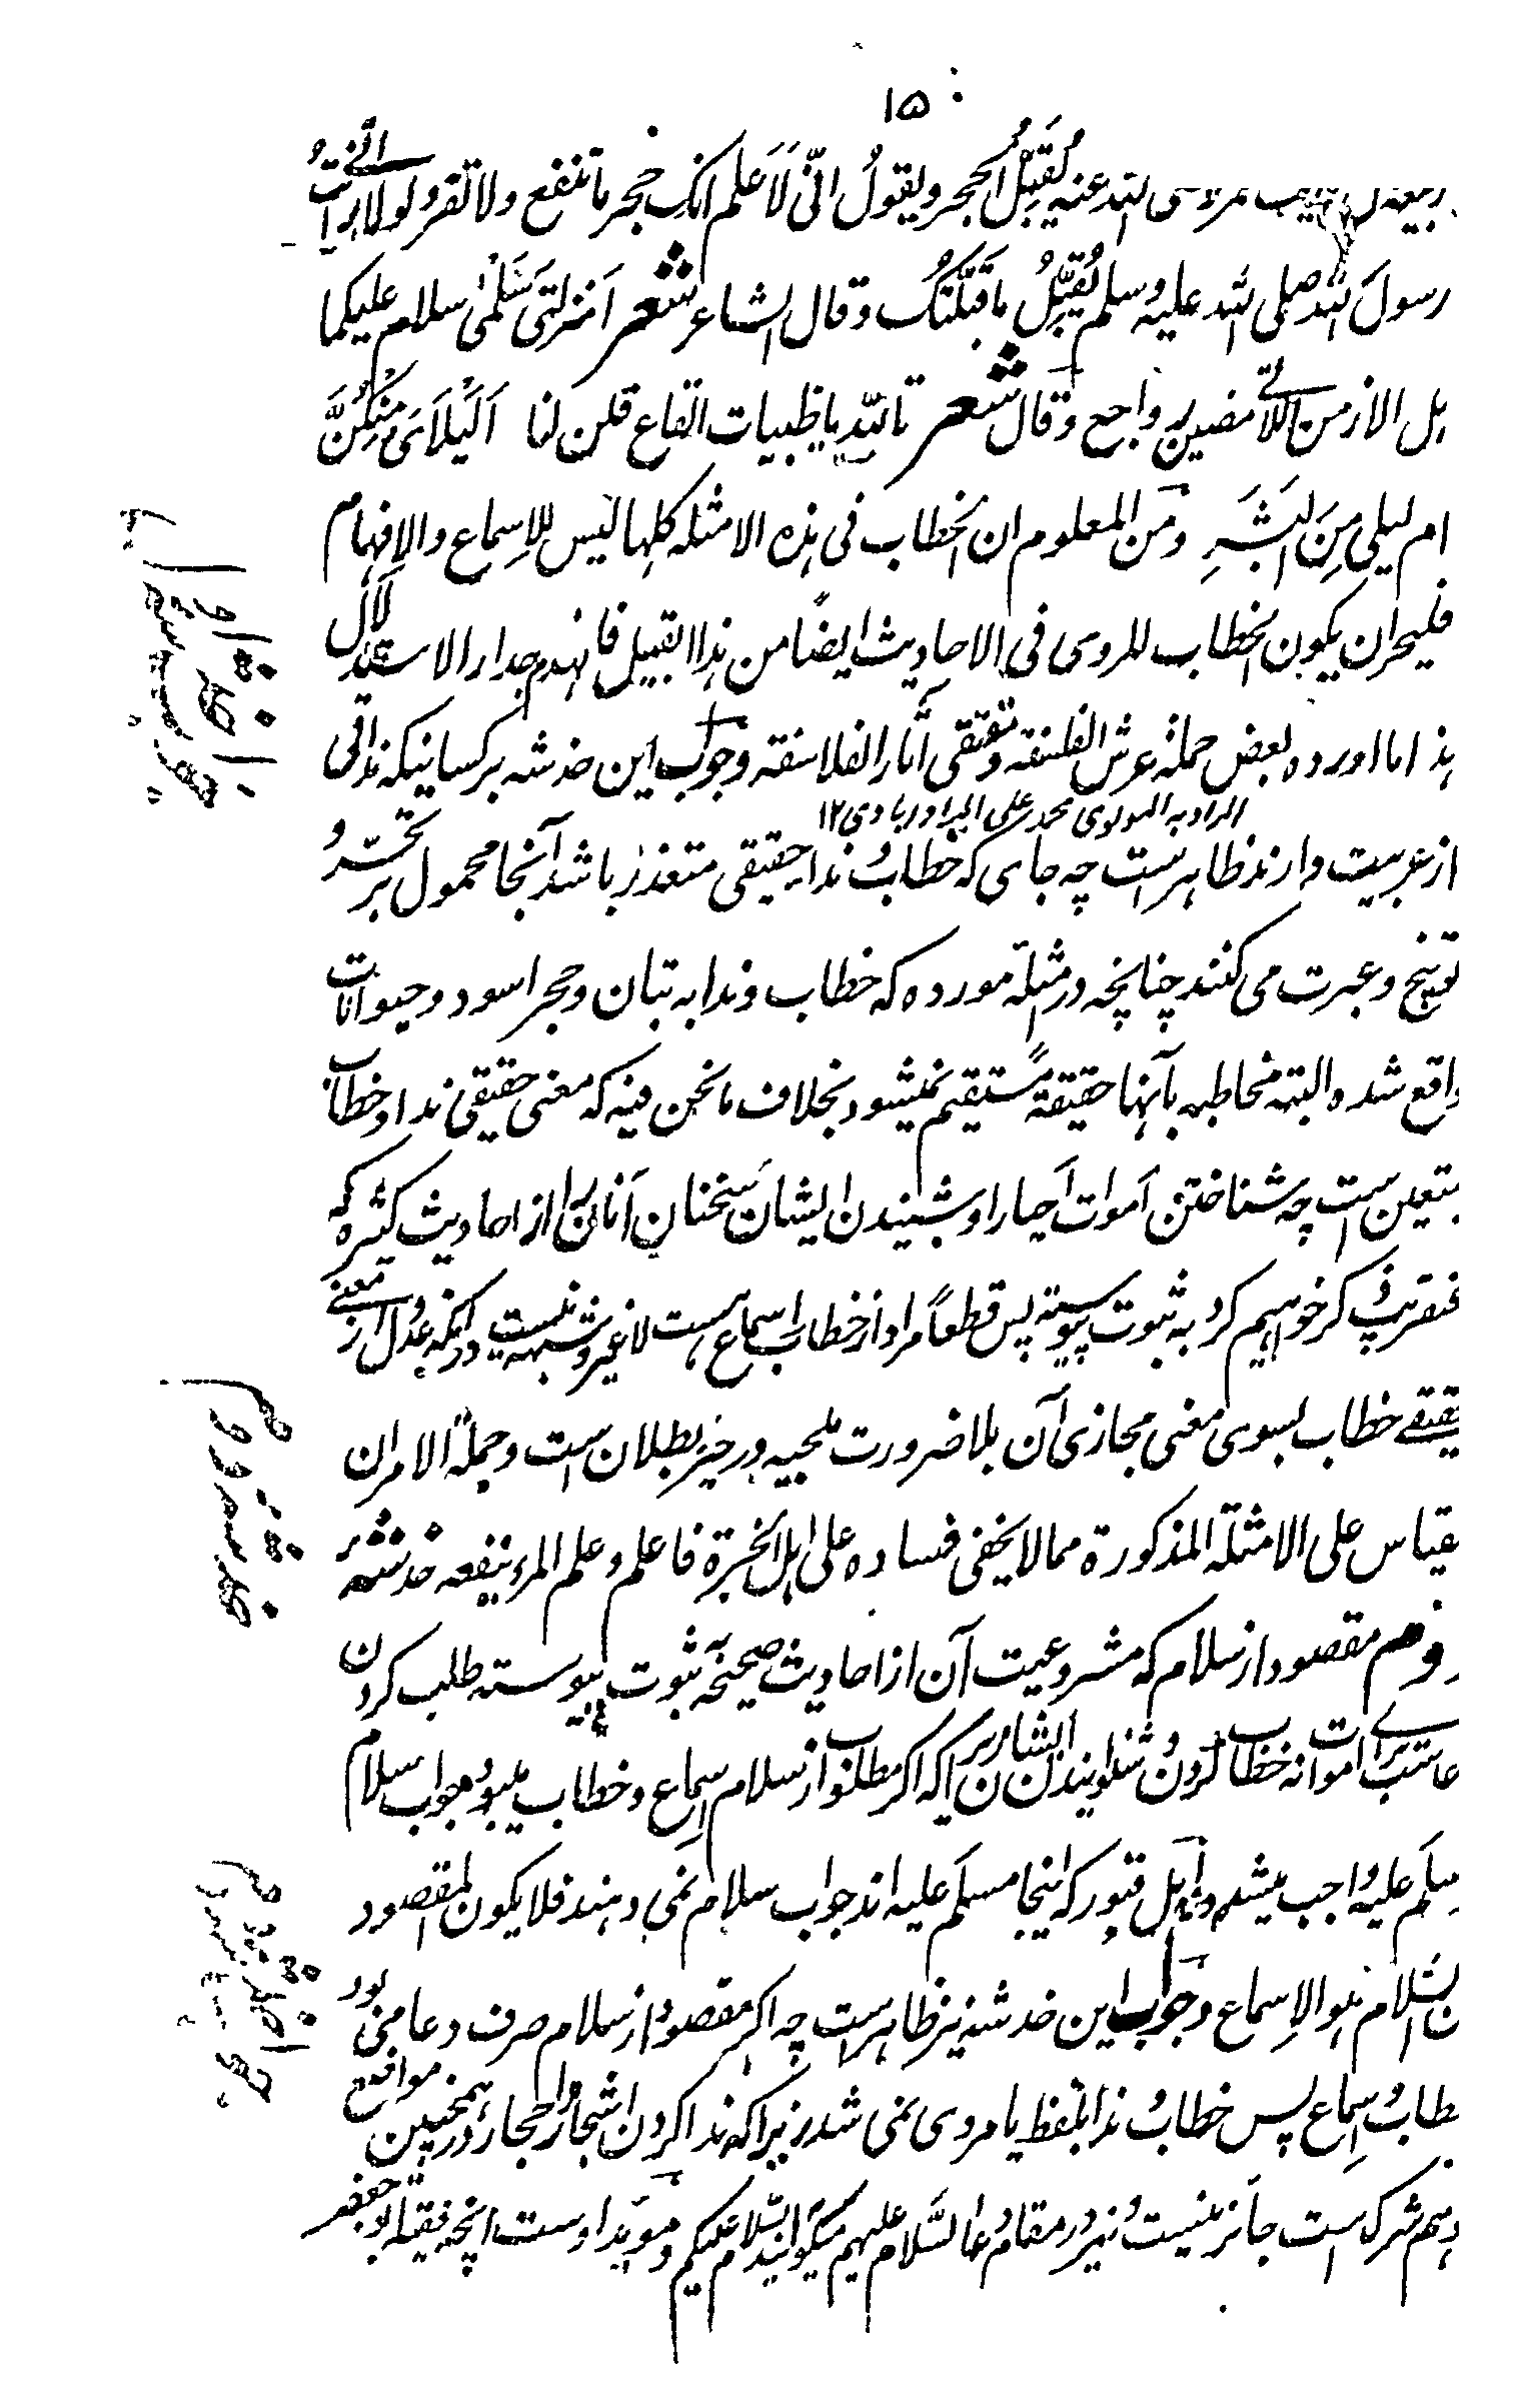 ۱۵
ربیعه عنه یُقَبِّلُ الحجر ویقولُ انّی لَاَعلم انک حجر ما تنفع ولا تضر ولولا انی رأیتُ
رسولَ الله صلی الله علیه وسلم یُقبِّلُ ما قبّلتک وقال الشاعر شعر اَمنزلتی سَلْمیٰ سلام علیکما
هل الازمن اللاتے مضین رواجع وقال شعر تاللہِ یا ظبیات القاع قلن لنا اَلَیْلَایَ مِنْکُنَّ
ام لیلی مِنَ البَشَرِ ومن المعلوم ان الخطاب فی هذه الامثله کلها لیس للاِسماع والاِفهام
فلیحر ان یکون الخطاب للمروی فی الاحادیث ایضًا من هذا القبیل فانهدم جدار الاستدلال
هذا ما اورده بعض حملۂ عرش الفلسفة ومقتفی آثار الفلاسفة وجواب این خدشه بر کسانیکه مذاقی
المراد به المولوی محمد علی المراد ابادی ۱۲
از عربیت دارند ظاهر است چه جای که خطاب و نداء حقیقی متعذر باشد آنجا محمول بر تحسّر و
توبیخ و عبرت می کنند چنانچه در امثلۀ مورده که خطاب و ندا به بتان و حجر اسود و حیوانات
واقع شده البته مخاطبه بآنها حقیقةً مستقیم نمیشود بخلاف ما نحن فیه که معنی حقیقی ندا و خطاب
متعین ست چه شناختن اموات احیا را و شنیدن ایشان سخنان آنان را از احادیث کثیره که
عنقریب ذکر خواهیم کرد به ثبوت پیوسته پس قطعاً مراد از خطاب اسماع هست لا غیر و شبهه نیست در آنکه عدول از معنے
حقیقے خطاب بسوی معنی مجازی آن بلا ضرورت ملجیه در حیز بطلان ست وجملة الامر ان
القیاس علی الامثلة المذکورة مما لا یخفی فساده علی اهل الخبرة فاعلم وعلم المرء ینفعه خدشۂ
دوم مقصود از سلام که مشروعیت آن از احادیث صحیحه به ثبوت پیوسته طلب کردن
دعا ست براے اموات نه خطاب کردن و شنوانیدن ایشان زیراکه اگر مطلوب از سلام اسماع و خطاب میبود جواب سلام
مسلَّم علیه واجب میشد و اهل قبور که اینجا مسلم علیه اند جواب سلام نمی دهند فلا یکون المقصود
من السّلام هو الاِسماع وجواب این خدشه نیز ظاهر است چه اگر مقصود از سلام صرف دعا می بود
نه خطاب و اسماع پس خطاب و ندا بلفظ یا مروی نمی شد زیراکه ندا کردن اشجار و احجار در همچنین مواقع
وهم شرک است جائز نیست و نیز در مقام دعا السَّلام علیهم میگویند السّلام علیکم و موید اوست انچه فقیه ابو جعفر
جواب خدشۂ اول
خدشۂ دوم
جواب خدشۂ دوم